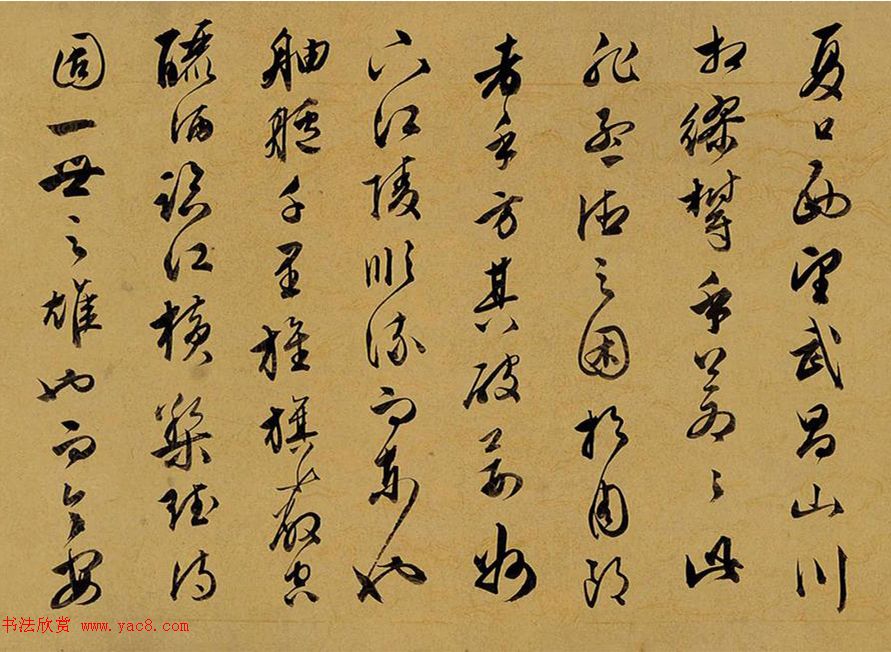 夏口西望武昌山川
相繆欝乎蒼々此
非孟德之困於周郎
者乎方其破荊州
下江陵順流而東也
舳艫千里旌旗蔽空
釃酒臨江橫槊賦詩
固一世之雄也而今安
书法欣赏 www.yac8.com